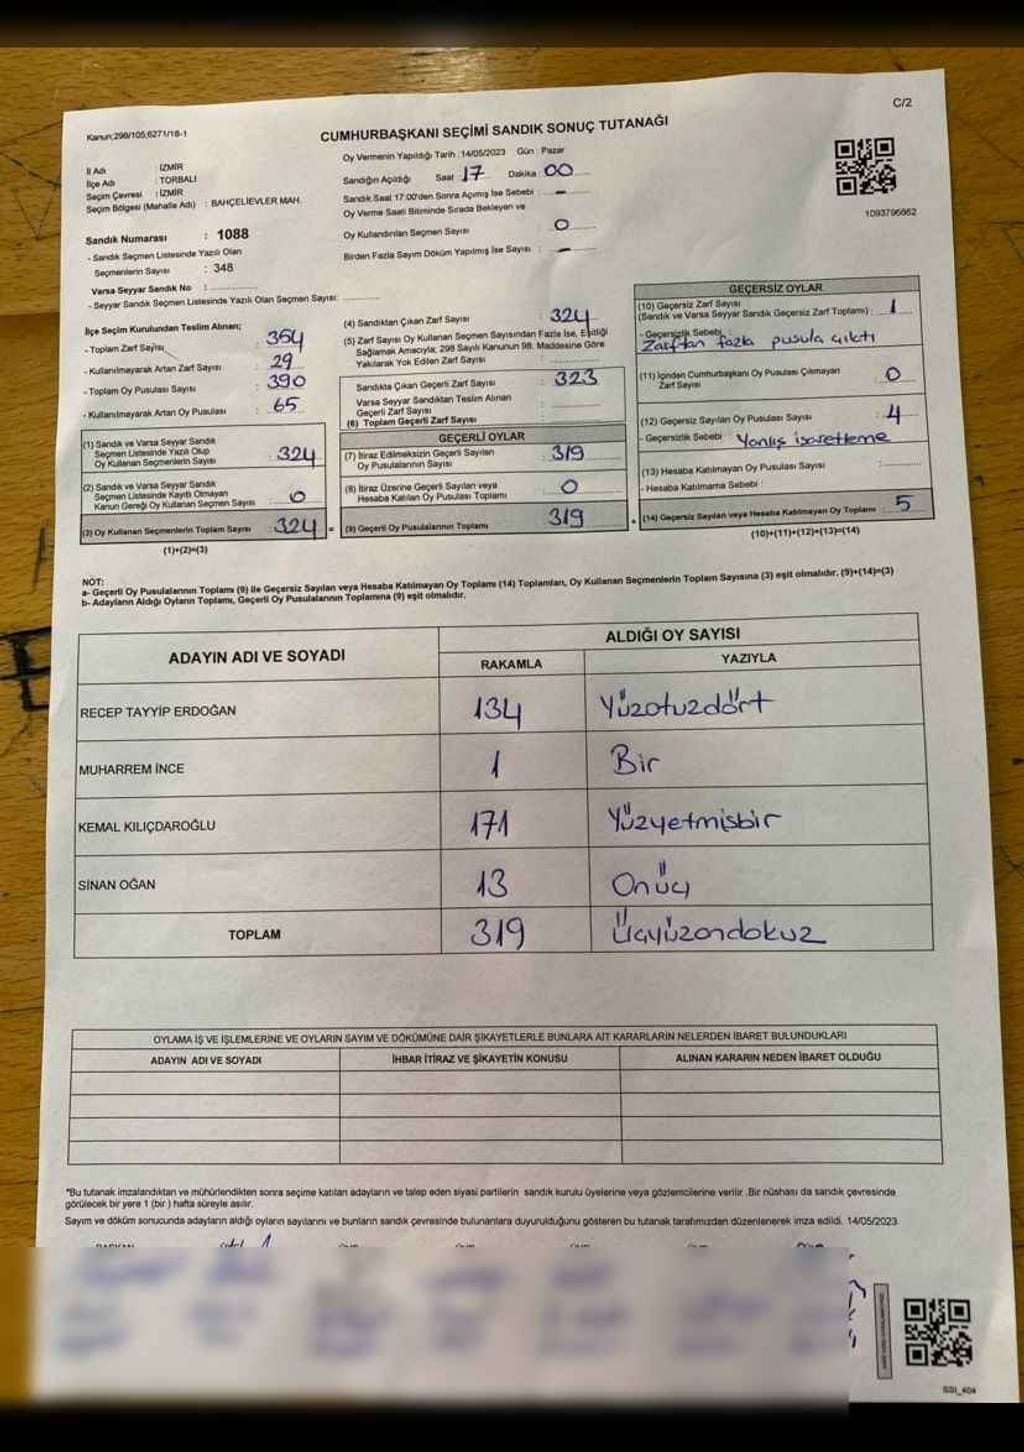 C/2
Kanun;298/105;6271/18-1
CUMHURBAŞKANI SEÇİMİ SANDIK SONUÇ TUTANAĞI
İl Adı : İZMİR
İlçe Adı : TORBALI
Seçim Çevresi : İZMİR
Seçim Bölgesi (Mahalle Adı) : BAHÇELİEVLER MAH.
Sandık Numarası : 1088
- Sandık Seçmen Listesinde Yazılı Olan
Seçmenlerin Sayısı : 348
Varsa Seyyar Sandık No :
- Seyyar Sandık Seçmen Listesinde Yazılı Olan Seçmen Sayısı:
Oy Vermenin Yapıldığı Tarih :14/05/2023 Gün : Pazar
Sandığın Açıldığı Saat : 17 Dakika : 00
Sandık Saat 17:00'den Sonra Açımış İse Sebebi : -
Oy Verme Saati Bitiminde Sırada Bekleyen ve
Oy Kullandırılan Seçmen Sayısı : 0
Birden Fazla Sayım Döküm Yapılmış İse Sayısı : -
1093796862
İlçe Seçim Kurulundan Teslim Alınan;
- Toplam Zarf Sayısı : 354
- Kullanılmayarak Artan Zarf Sayısı : 29
- Toplam Oy Pusulası Sayısı : 390
- Kullanılmayarak Artan Oy Pusulası : 65
(1) Sandık ve Varsa Seyyar Sandık
Seçmen Listesinde Yazılı Olup
Oy Kullanan Seçmenlerin Sayısı : 324
(2) Sandık ve Varsa Seyyar Sandık
Seçmen Listesinde Kayıtlı Olmayan
Kanun Gereği Oy Kullanan Seçmen Sayısı : 0
(3) Oy Kullanan Seçmenlerin Toplam Sayısı : 324 =
(1)+(2)=(3)
(4) Sandıktan Çıkan Zarf Sayısı : 324
(5) Zarf Sayısı Oy Kullanan Seçmen Sayısından Fazla İse, Eşitliği
Sağlamak Amacıyla, 298 Sayılı Kanunun 98. Maddesine Göre
Yakılarak Yok Edilen Zarf Sayısı :
Sandıkta Çıkan Geçerli Zarf Sayısı : 323
Varsa Seyyar Sandıktan Teslim Alınan
Geçerli Zarf Sayısı :
(6) Toplam Geçerli Zarf Sayısı :
GEÇERLİ OYLAR
(7) İtiraz Edilmeksizin Geçerli Sayılan
Oy Pusulasının Sayısı : 319
(8) İtiraz Üzerine Geçerli Sayılan veya
Hesaba Katılan Oy Pusulası Toplamı : 0
(9) Geçerli Oy Pusulalarının Toplamı : 319 +
GEÇERSİZ OYLAR
(10) Geçersiz Zarf Sayısı
(Sandık ve Varsa Seyyar Sandık Geçersiz Zarf Toplamı) : 1
- Geçersizlik Sebebi :
Zarftan fazla pusula çıktı
(11) İçinden Cumhurbaşkanı Oy Pusulası Çıkmayan
Zarf Sayısı : 0
(12) Geçersiz Sayılan Oy Pusulası Sayısı : 4
- Geçersizlik Sebebi : Yanlış işaretleme
(13) Hesaba Katılmayan Oy Pusulası Sayısı :
- Hesaba Katılmama Sebebi :
(14) Geçersiz Sayılan veya Hesaba Katılmayan Oy Toplamı : 5
(10)+(11)+(12)+(13)=(14)
NOT:
a- Geçerli Oy Pusulalarının Toplamı (9) ile Geçersiz Sayılan veya Hesaba Katılmayan Oy Toplamı (14) Toplamları, Oy Kullanan Seçmenlerin Toplam Sayısına (3) eşit olmalıdır. (9)+(14)=(3)
b- Adayların Aldığı Oyların Toplamı, Geçerli Oy Pusulalarının Toplamına (9) eşit olmalıdır.
ADAYIN ADI VE SOYADI ALDIĞI OY SAYISI
RAKAMLA YAZIYLA
RECEP TAYYİP ERDOĞAN 134 Yüzotuzdört
MUHARREM İNCE 1 Bir
KEMAL KILIÇDAROĞLU 171 Yüzyetmişbir
SİNAN OĞAN 13 Onüç
TOPLAM 319 Üçyüzondokuz
OYLAMA İŞ VE İŞLEMLERİNE VE OYLARIN SAYIM VE DÖKÜMÜNE DAİR ŞİKAYETLERLE BUNLARA AİT KARARLARIN NELERDEN İBARET BULUNDUKLARI
ADAYIN ADI VE SOYADI İHBAR İTİRAZ VE ŞİKAYETİN KONUSU ALINAN KARARIN NEDEN İBARET OLDUĞU
*Bu tutanak imzalandıktan ve mühürlendikten sonra seçime katılan adayların ve talep eden siyasi partilerin sandık kurulu üyelerine veya gözlemcilerine verilir. Bir nüshası da sandık çevresinde
görülecek bir yere 1 (bir) hafta süreyle asılır.
Sayım ve döküm sonucunda adayların aldığı oyların sayılarını ve bunların sandık çevresinde bulunanlara duyurulduğunu gösteren bu tutanak tarafımızdan düzenlenerek imza edildi. 14/05/2023